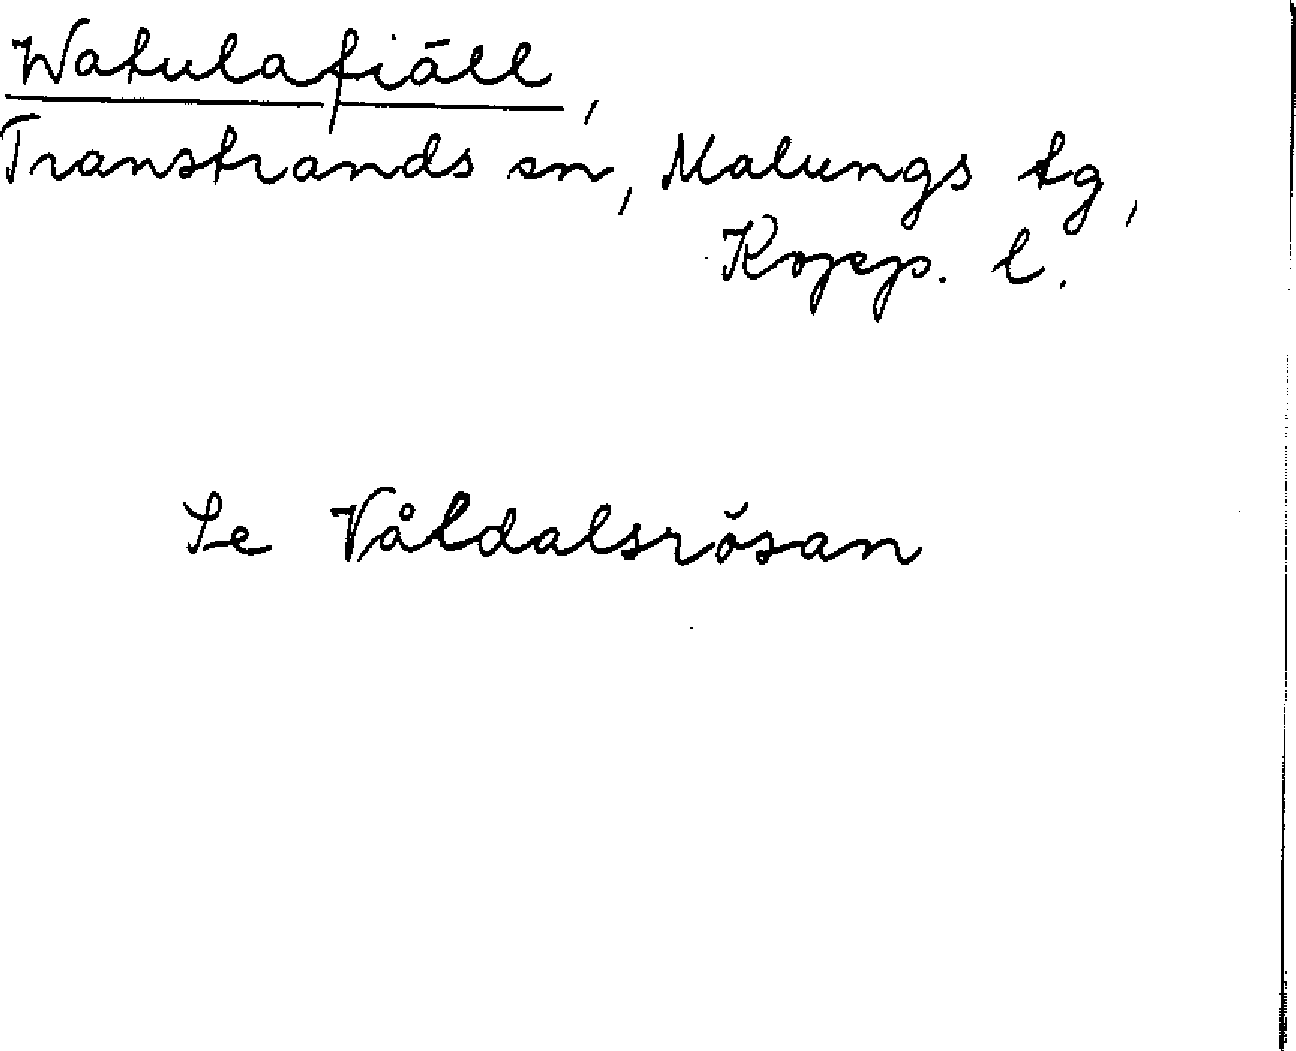 Watulafiäll,
Transtrands sn, Malungs tg,
Kopp. l.
Se Våldalsrösan